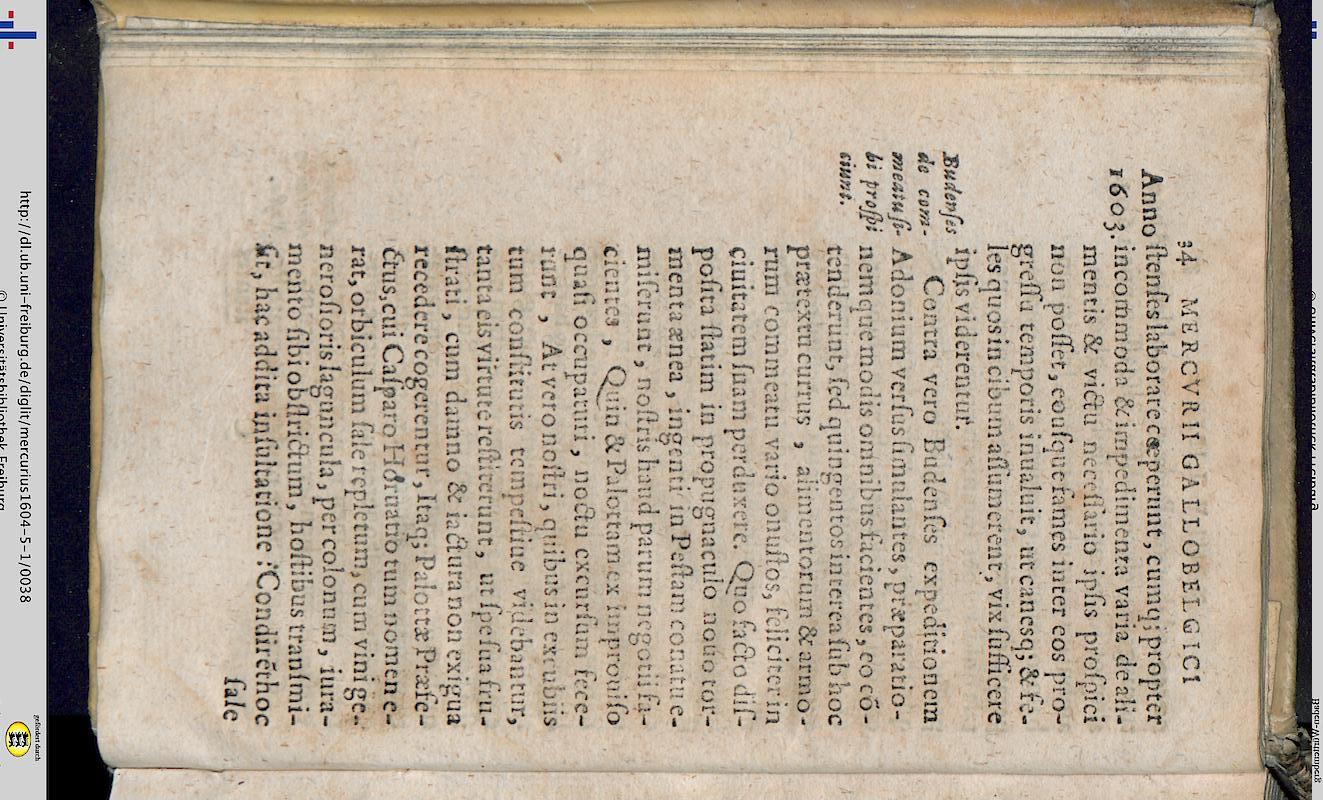 34 MERCVRII GALLOBELGICI
Anno ſtenſes laborare cœperunt, cumq; propter
1603. incommoda & impedimenta varia de ali-
mentis & victu neceſſario ipſis proſpici
non poſſet, eouſque fames inter eos pro-
greſſu temporis inualuit, ut canesq; & fe-
les quos in cibum aſſumerent, vix ſufficere
ipſis viderentur.
Budenſes
de com-
meatu ſi-
bi proſpi
ciunt.
Contra vero Budenſes expeditionem
Adonium verſus ſimulantes, præparatio-
nemque modis omnibus facientes, eo cõ-
tenderunt, ſed quingentos interea ſub hoc
prætextu currus, alimentorum & armo-
rum commeatu vario onuſtos, feliciter in
ciuitatem ſuam perduxere. Quo facto diſ-
poſita ſtatim in propugnaculo nouo tor-
menta ænea, ingenti in Peſtam conatu e-
miſerunt, noſtris haud parum negotii fa-
cientes, Quin & Palottam ex improuiſo
quaſi occupaturi, noctu excurſum fece-
runt, At vero noſtri, quibus in excubiis
tum conſtitutis tempeſtiue videbantur,
tanta eis virtute reſtiterunt, ut ſpe ſua fru-
ſtrati, cum damno & iactura non exigua
recedere cogerentur, Itaq; Palottæ Præfe-
ctus, cui Caſparo Hornatio tum nomen e-
rat, orbiculum ſale repletum, cum vini ge-
neroſioris laguncula, per colonum, iura-
mento ſibi obſtrictum, hoſtibus tranſmi-
ſit, hac addita inſultatione: Condirẽt hoc
ſale
http://dl.ub.uni-freiburg.de/diglit/mercurius1604-5-1/0038
© Universitätsbibliothek Freiburg
gefördert durch